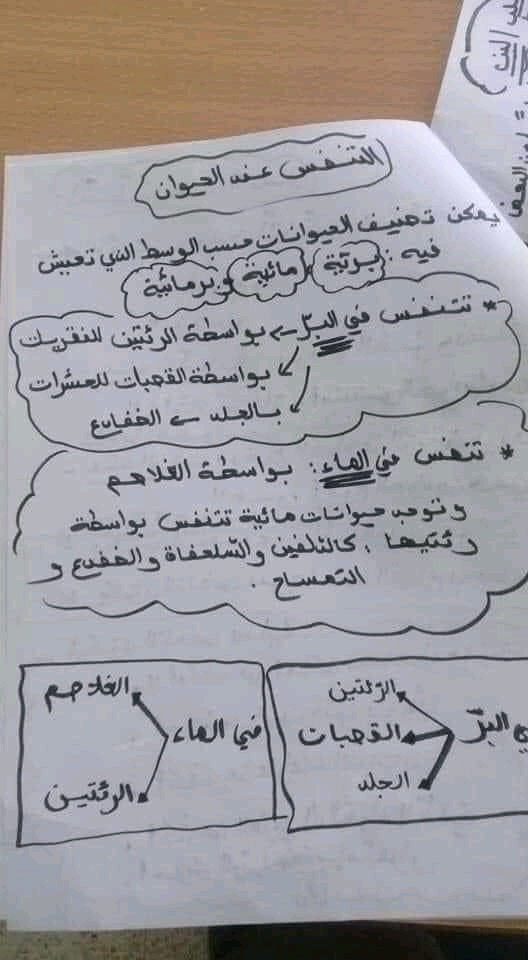 التنفس عند الحيوان
يمكن تصنيف الحيوانات حسب الوسط الذي تعيش
فيه : برّية، مائية وبرمائية
* تتنفس في البرّ ← بواسطة الرئتين للفقريات
بواسطة القصبات للحشرات
بالجلد ← الضفادع
* تتنفس في الماء : بواسطة الغلاصم
وتوجد حيوانات مائية تتنفس بواسطة
رئتيها : كالدلفين والسّلحفاة والضفدع و
التمساح .
ي البرّ
الرّئتين
القصبات
الجلد
في الماء
الغلاصم
الرئتين